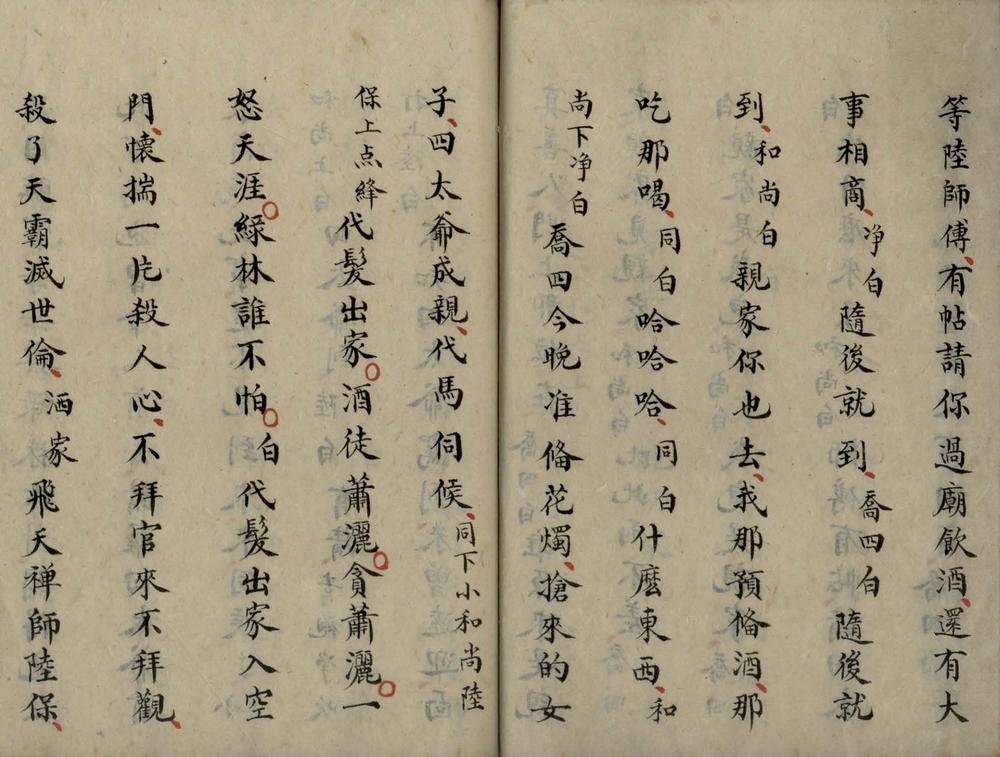 等陸師傅、有帖請你過廟飲酒、還有大
事相商、净白隨後就到、喬四白隨後就
到、和尚白親家你也去、我那預俻酒、那
吃那喝、同白哈哈哈、同白什麽東西、和
尚下净白喬四今晚准俻花燭、搶來的女
子、四太爺成親、代馬伺候、同下小和尚陸
保上点絳代髮出家。酒徒蕭灑。貪蕭灑。一
怒天涯。緑林誰不怕。白代髮出家入空
門、懷揣一片殺人心、不拜官來不拜觀、
殺了天霸滅世倫、洒家飛天禅師陸保、